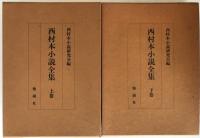 西村本小説研究会編
西村本小説全集
上巻
勉誠社
西村本小説研究会編
西村本小説全集
下巻
勉誠社